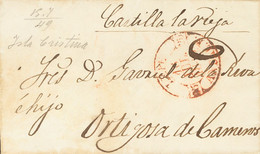 15-7
49
Isla Cristina
Castilla la vieja
Sres D. Gabriel de la Riva
è hijo
Ortigosa de Cameros